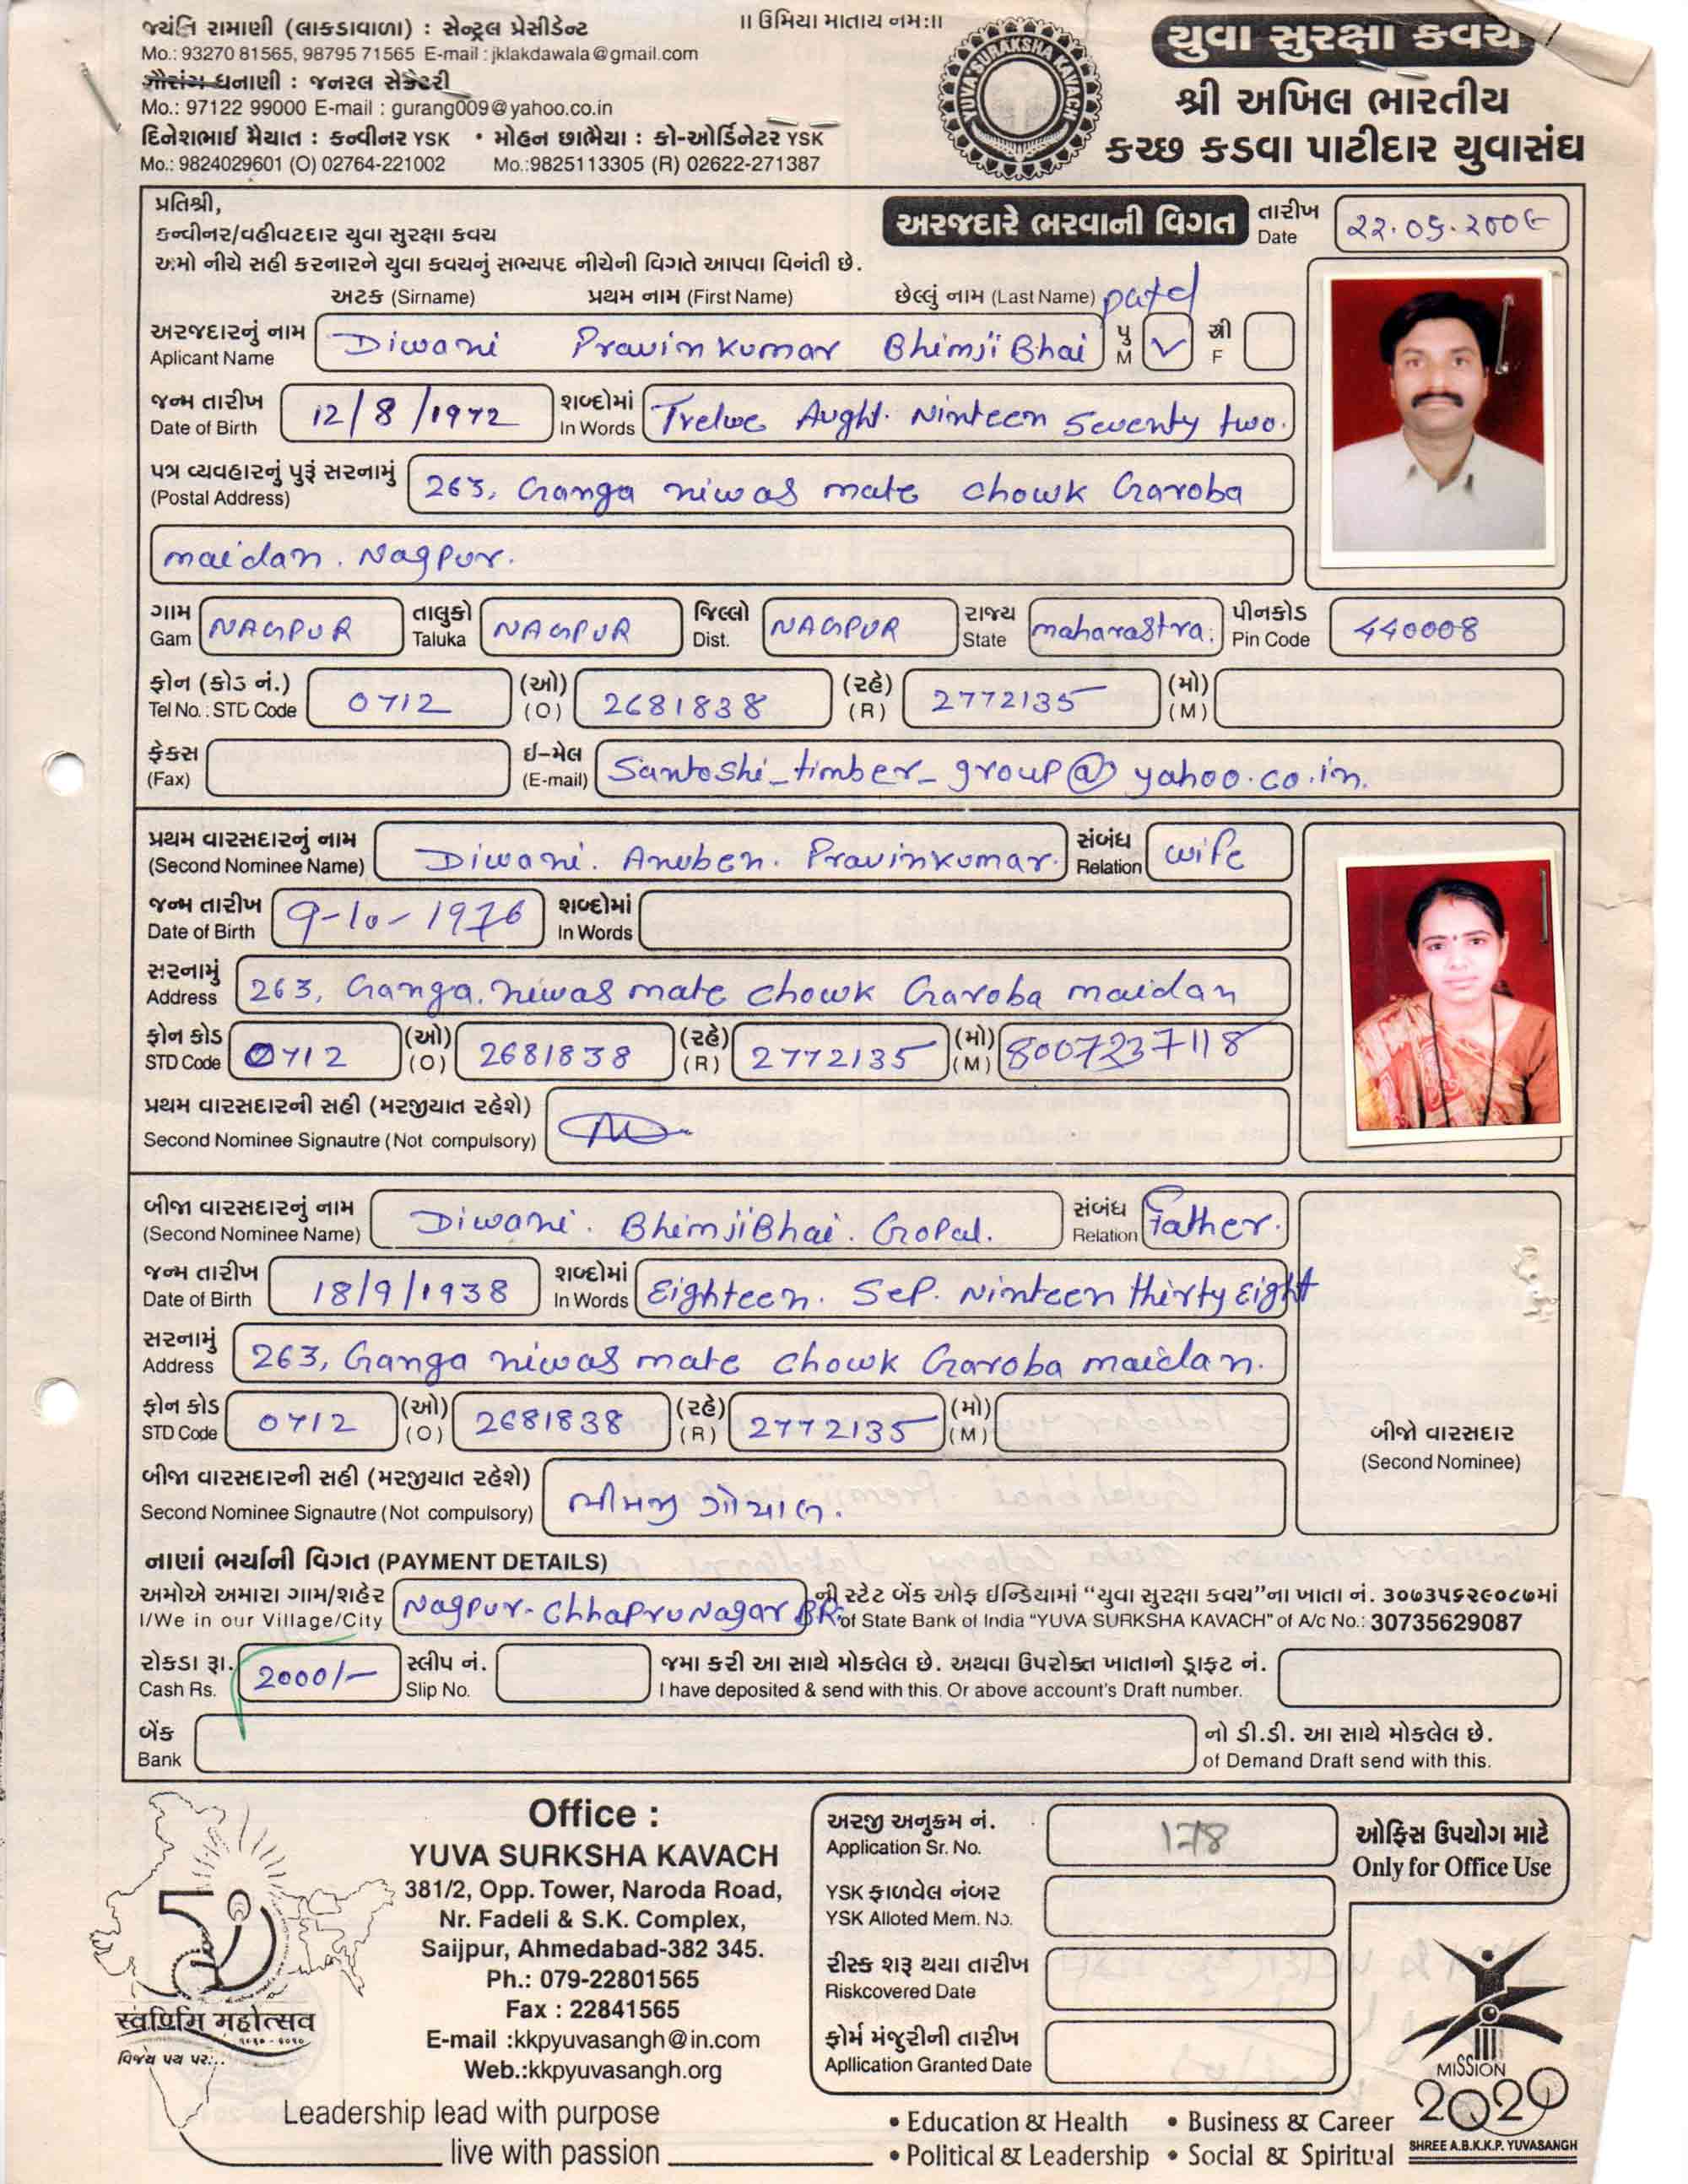 જયંતિ રામાણી (લાકડાવાળા) : સેન્ટ્રલ પ્રેસીડેન્ટ
Mo.: 93270 81565, 98795 71565 E-mail : jklakdawala@gmail.com
ગૌરાંગ ધનાણી : જનરલ સેક્રેટરી
Mo.: 97122 99000 E-mail : gurang009@yahoo.co.in
દિનેશભાઈ મૈયાત : કન્વીનર YSK • મોહન છાભૈયા : કો-ઓર્ડિનેટર YSK
Mo.: 9824029601 (O) 02764-221002 Mo.:9825113305 (R) 02622-271387
॥ ઉમિયા માતાય નમ:॥
YUVA SURAKSHA KAVACH
યુવા સુરક્ષા કવચ
શ્રી અખિલ ભારતીય
કચ્છ કડવા પાટીદાર યુવાસંઘ
પ્રતિશ્રી,
કન્વીનર/વહીવટદાર યુવા સુરક્ષા કવચ
અરજદારે ભરવાની વિગત તારીખ Date
અમો નીચે સહી કરનારને યુવા કવચનું સભ્યપદ નીચેની વિગતે આપવા વિનંતી છે.
અટક (Sirname) પ્રથમ નામ (First Name) છેલ્લું નામ (Last Name) patel
અરજદારનું નામ Aplicant Name Diwani Pravinkumar BhimjiBhai પુ M ✓ સ્ત્રી F
જન્મ તારીખ Date of Birth 12/8/1972 શબ્દોમાં In Words Trelwe Aught. Ninteen Seventy two.
પત્ર વ્યવહારનું પુરૂં સરનામું (Postal Address) 263, Ganga niwas mate chowk Garoba
maidan. Nagpur.
ગામ Gam NAGPUR તાલુકો Taluka NAGPUR જિલ્લો Dist. NAGPUR રાજ્ય State maharastra. પીનકોડ Pin Code 440008
ફોન (કોડ નં.) Tel No. : STD Code 0712 (ઓ) (O) 2681838 (રહે) (R) 2772135 (મો) (M)
ફેક્સ (Fax) ઈ-મેલ (E-mail) Santoshi_timber_group@yahoo.co.in.
પ્રથમ વારસદારનું નામ (Second Nominee Name) Diwani. Anuben. Pravinkumar. સંબંધ Relation wife
જન્મ તારીખ Date of Birth 9-10-1976 શબ્દોમાં In Words
સરનામું Address 263, Ganga. niwas mate chowk Garoba maidan
ફોન કોડ STD Code 0712 (ઓ) (O) 2681838 (રહે) (R) 2772135 (મો) (M) 8007237118
પ્રથમ વારસદારની સહી (મરજીયાત રહેશે)
Second Nominee Signautre (Not compulsory)
બીજા વારસદારનું નામ (Second Nominee Name) Diwani. BhimjiBhai. Gopal. સંબંધ Relation Father.
જન્મ તારીખ Date of Birth 18/9/1938 શબ્દોમાં In Words Eighteen. Sep. Ninteen thirty Eight
સરનામું Address 263, Ganga niwas mate chowk Garoba maidan.
ફોન કોડ STD Code 0712 (ઓ) (O) 2681838 (રહે) (R) 2772135 (મો) (M)
બીજો વારસદાર
(Second Nominee)
બીજા વારસદારની સહી (મરજીયાત રહેશે)
Second Nominee Signautre (Not compulsory) ભીમજી ગોપાલ.
નાણાં ભર્યાની વિગત (PAYMENT DETAILS)
અમોએ અમારા ગામ/શહેર Nagpur-Chhaprunagar BR. ની સ્ટેટ બેંક ઓફ ઈન્ડિયામાં “યુવા સુરક્ષા કવચ”ના ખાતા નં. ૩૦૭૩૫૬૨૯૦૮૭માં
I/We in our Village/City of State Bank of India "YUVA SURKSHA KAVACH" of A/c No.: 30735629087
રોકડા રૂા. Cash Rs. 2000/- સ્લીપ નં. Slip No. જમા કરી આ સાથે મોકલેલ છે. અથવા ઉપરોક્ત ખાતાનો ડ્રાફટ નં.
I have deposited & send with this. Or above account's Draft number.
બેંક Bank નો ડી.ડી. આ સાથે મોકલેલ છે.
of Demand Draft send with this.
Office :
YUVA SURKSHA KAVACH
381/2, Opp. Tower, Naroda Road,
Nr. Fadeli & S.K. Complex,
Saijpur, Ahmedabad-382 345.
Ph.: 079-22801565
Fax : 22841565
E-mail :kkpyuvasangh@in.com
Web.:kkpyuvasangh.org
અરજી અનુક્રમ નં. Application Sr. No. 178
ઓફિસ ઉપયોગ માટે
Only for Office Use
YSK ફાળવેલ નંબર YSK Alloted Mem. No.
રીસ્ક શરૂ થયા તારીખ Riskcovered Date
ફોર્મ મંજુરીની તારીખ Apllication Granted Date
50
स्वर्णिम महोत्सव
વિજય પથ પર...
MISSION
2020
SHREE A.B.K.K.P. YUVASANGH
Leadership lead with purpose
live with passion
• Education & Health • Business & Career
• Political & Leadership • Social & Spiritual